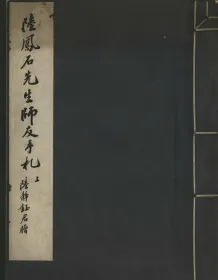 陸鳳石先生師友手札 上
陸靜鈺君贈